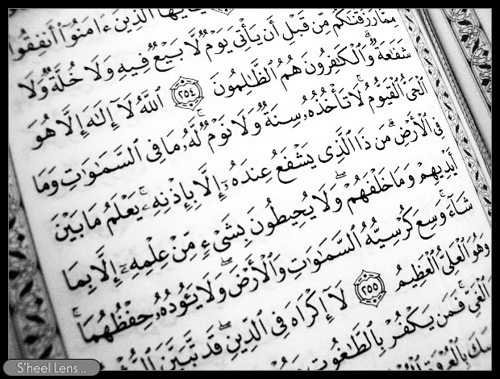 يَٰٓأَيُّهَا ٱلَّذِينَ ءَامَنُوٓا۟ أَنفِقُوا۟
مِمَّا رَزَقْنَٰكُم مِّن قَبْلِ أَن يَأْتِىَ يَوْمٌ لَّا بَيْعٌ فِيهِ وَلَا خُلَّةٌ وَلَا
شَفَٰعَةٌ وَٱلْكَٰفِرُونَ هُمُ ٱلظَّٰلِمُونَ ٢٥٤ ٱللَّهُ لَآ إِلَٰهَ إِلَّا هُوَ
ٱلْحَىُّ ٱلْقَيُّومُ لَا تَأْخُذُهُۥ سِنَةٌ وَلَا نَوْمٌ لَّهُۥ مَا فِى ٱلسَّمَٰوَٰتِ وَمَا
فِى ٱلْأَرْضِ مَن ذَا ٱلَّذِى يَشْفَعُ عِندَهُۥٓ إِلَّا بِإِذْنِهِۦ يَعْلَمُ مَا بَيْنَ
أَيْدِيهِمْ وَمَا خَلْفَهُمْ وَلَا يُحِيطُونَ بِشَىْءٍ مِّنْ عِلْمِهِۦٓ إِلَّا بِمَا
شَآءَ وَسِعَ كُرْسِيُّهُ ٱلسَّمَٰوَٰتِ وَٱلْأَرْضَ وَلَا يَـُٔودُهُۥ حِفْظُهُمَا
وَهُوَ ٱلْعَلِىُّ ٱلْعَظِيمُ ٢٥٥ لَآ إِكْرَاهَ فِى ٱلدِّينِ قَد تَّبَيَّنَ
ٱلْغَىِّ فَمَن يَكْفُرْ بِٱلطَّٰغُوتِ
بِٱلْعُرْوَةِ
S'heel Lens..